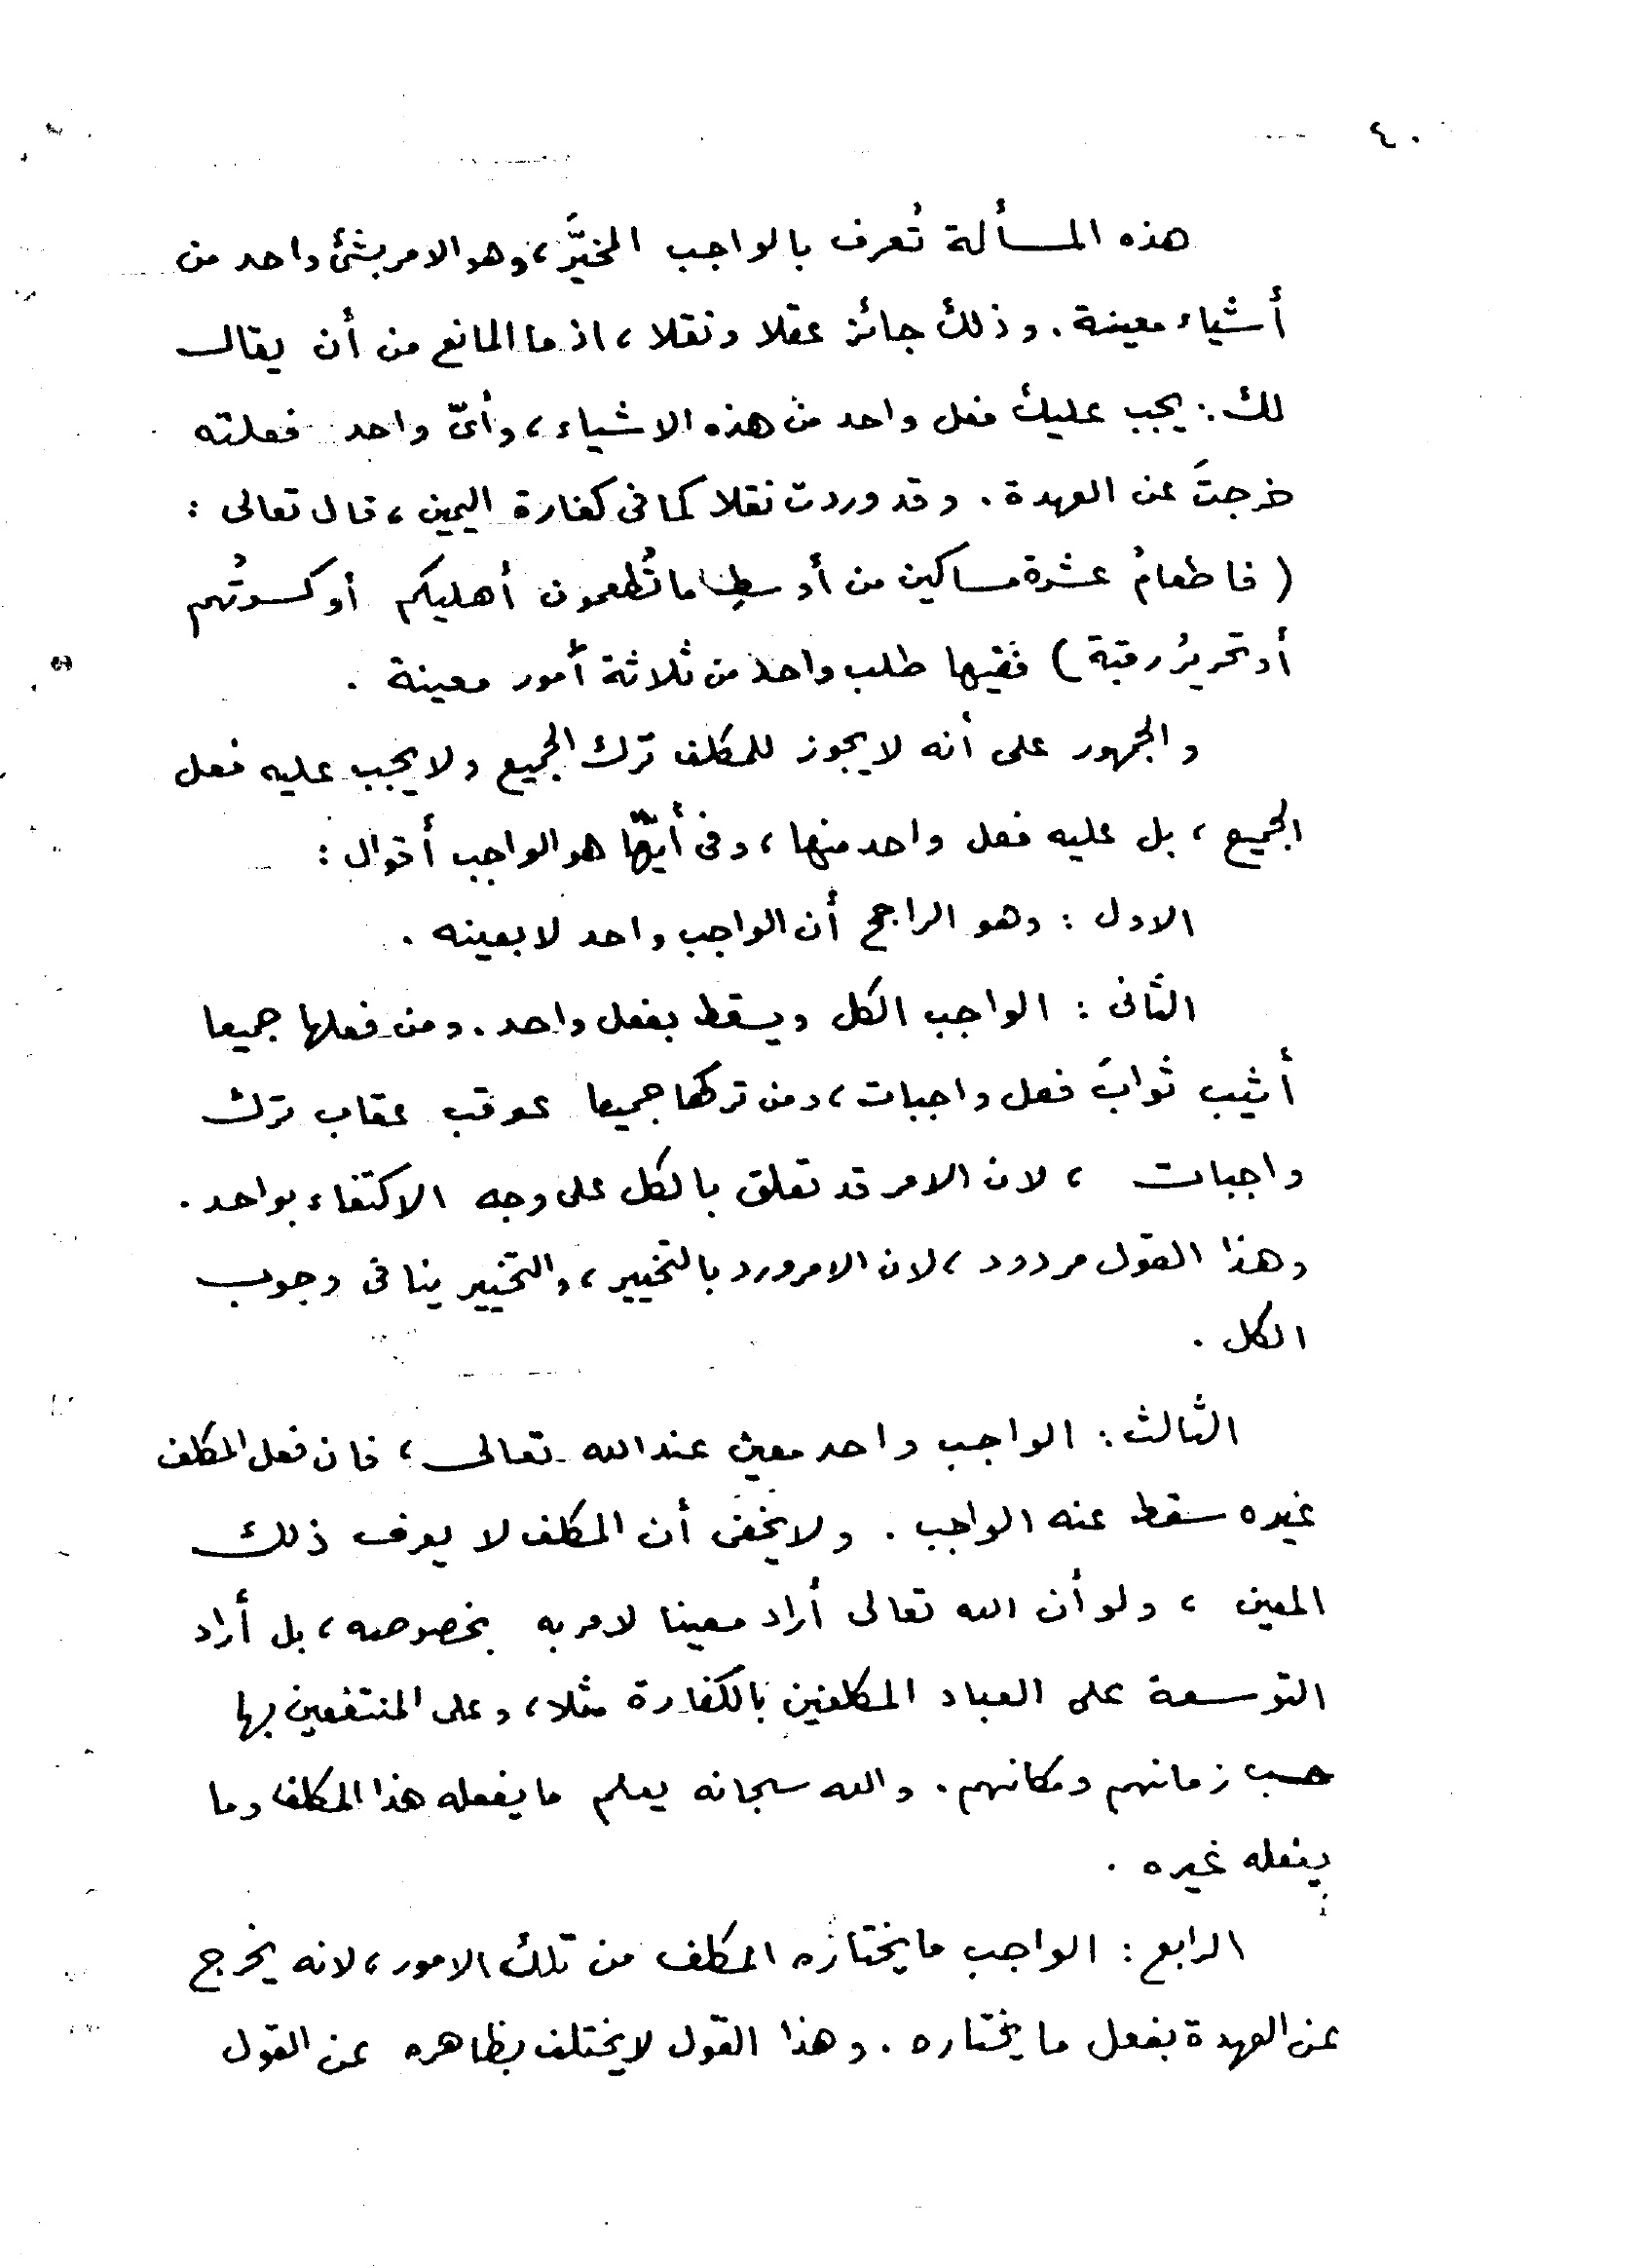 ٤٠
هذه المسألة تُعرف بالواجب المخيَّر، وهو الامر بشئ واحد من
أشياء معينة. وذلك جائز عقلا ونقلا، اذ ما المانع من أن يقال
لك: يجب عليك فعل واحد من هذه الاشياء، وأىّ واحد فعلته
خرجتَ عن العهدة. وقد وردت نقلا كما فى كفارة اليمين، قال تعالى :
( فاطعامُ عشرة مساكين من أوسطِ ما تُطعمون أهليكم أو كسوتُهم
أو تحريرُ رقبة) ففيها طلب واحد من ثلاثة أمور معينة .
والجمهور على أنه لا يجوز للمكلف ترك الجميع ولا يجب عليه فعل
الجميع ، بل عليه فعل واحد منها، وفى أيّها هو الواجب أقوال :
الاول : وهو الراجح أن الواجب واحد لا بعينه .
الثانى : الواجب الكل ويسقط بفعل واحد. ومن فعلها جميعا
أثيب ثوابَ فعل واجبات، ومن تركها جميعا عوقب عقاب ترك
واجبات ، لان الامر قد تعلق بالكل على وجه الاكتفاء بواحد.
وهذا القول مردود، لان الامر ورد بالتخيير، والتخيير ينافى وجوب
الكل .
الثالث: الواجب واحد معين عند الله تعالى، فان فعل المكلف
غيره سقط عنه الواجب . ولا يخفى أن المكلف لا يعرف ذلك
المعين ، ولو أن الله تعالى أراد معينا لامر به بخصوصه، بل أراد
التوسعة على العباد المكلفين بالكفارة مثلا، وعلى المنتفعين بها
حسب زمانهم ومكانهم. والله سبحانه يعلم ما يفعله هذا المكلف وما
يفعله غيره .
الرابع : الواجب ما يختاره المكلف من تلك الامور، لانه يخرج
عن العهدة بفعل ما يختاره . وهذا القول لا يختلف بظاهره عن القول